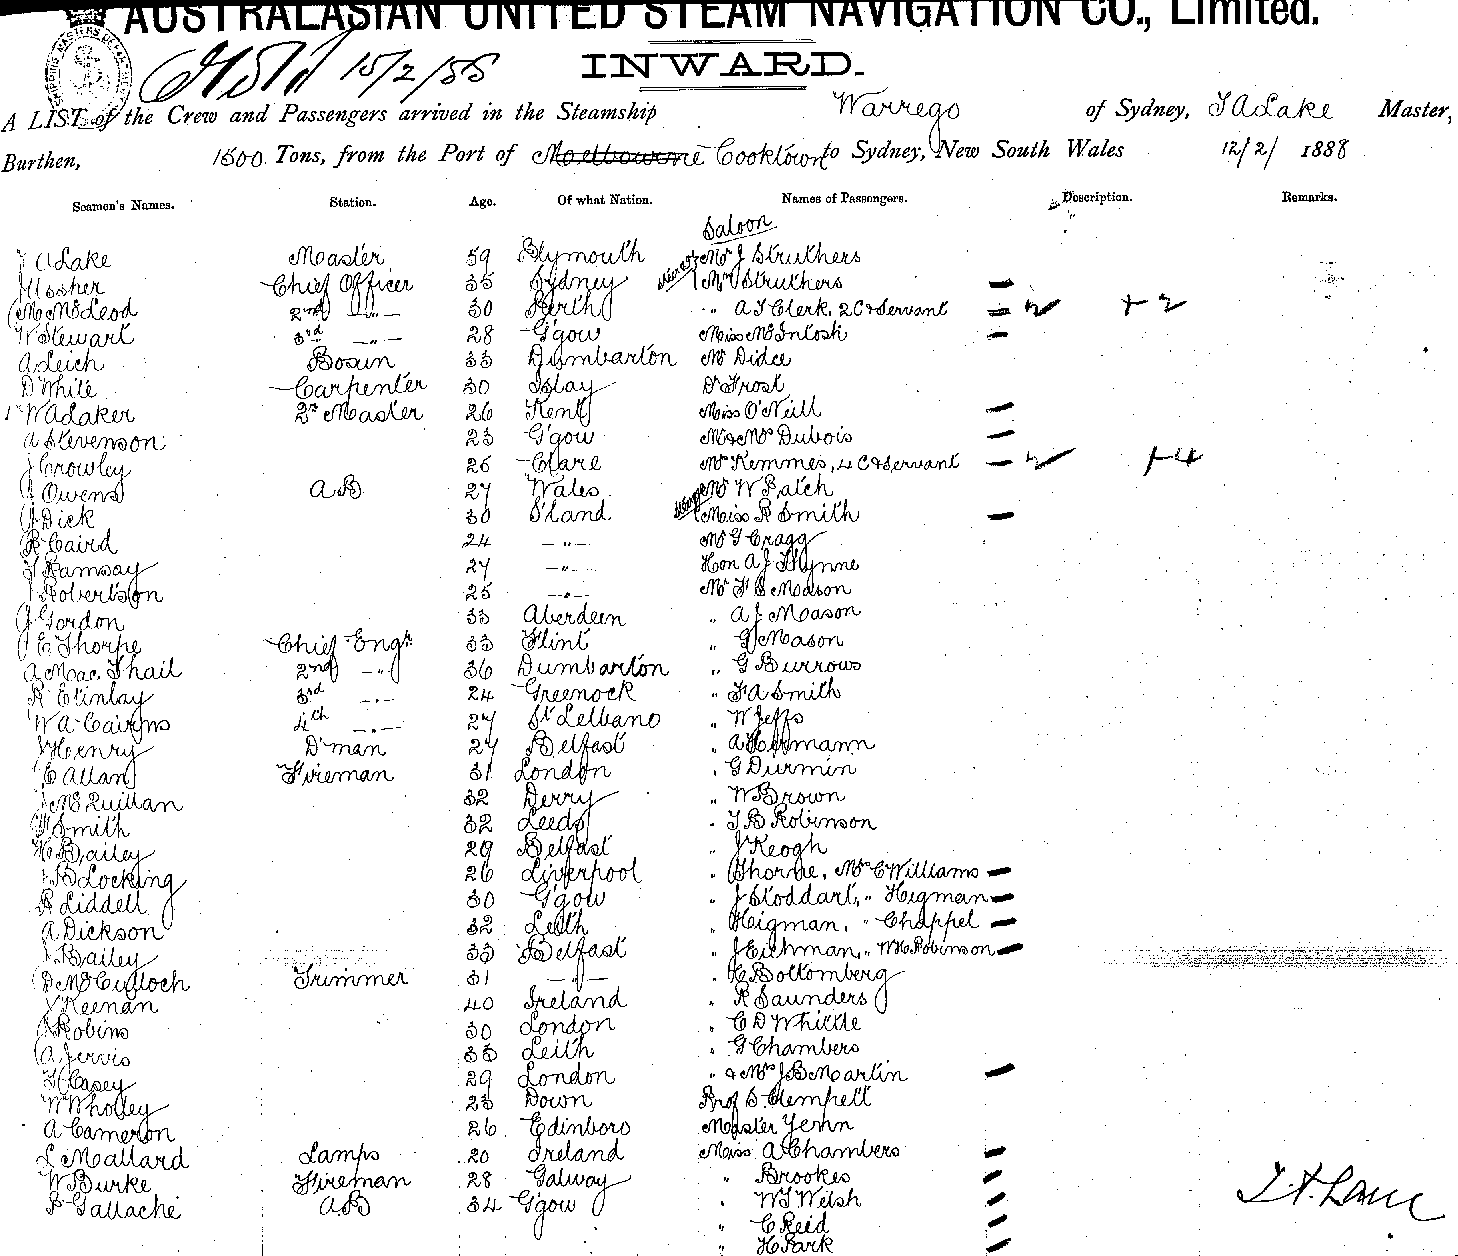 AUSTRALASIAN UNITED STEAM NAVIGATION CO., Limited.
15/2/88
INWARD.
A LIST of the Crew and Passengers arrived in the Steamship Warrego of Sydney, T A Lake Master,
Burthen, 1500 Tons, from the Port of Melbourne Cooktown to Sydney, New South Wales 12/2/ 1888
Seamen's Names. Station. Age. Of what Nation. Names of Passengers. Description. Remarks.
Saloon
T A Lake Master 59 Plymouth Mr J Struthers
J Usher Chief Officer 35 Sydney Mrs Struthers
M McLeod 2nd -"- 30 Perth " A T Clerk, 2 C & Servant 2 +2
W Stewart 3rd -"- 28 G'gow Miss McIntosh
A Leich Bosun 33 Dumbarton Mr Didce
D White Carpenter 30 Islay Dr Frost
W A Laker 2nd Master 26 Kent Miss O'Neill
A Stevenson 23 G'gow Mr & Mrs Dubois
J Crowley 26 Clare Mrs Kemmes, 4 C & Servant 2 +4
J Owens AB 27 Wales Mr W Patch
J Dick 30 S'land Miss R Smith
R Caird 24 -"- Mr G Cragg
T Ramsay 27 -"- Hon A J Thynne
J Robertson 25 -"- Mr F C Mason
J Gordon 33 Aberdeen " A J Mason
J E Thorpe Chief Engr 33 Flint " G Mason
A Mac Phail 2nd -"- 36 Dumbarton " G Burrows
R E Finlay 3rd -"- 24 Greenock " F A Smith
W A Cairns 4th -"- 27 " W Jeffs
J Henry D'man 27 Belfast " A Hermann
C Allan Fireman 31 London " G Durmin
J McQuillan 32 Derry " W Brown
W Smith 32 Leeds " T B Robinson
H Bailey 29 Belfast " J Keogh
J B Locking 26 Liverpool " Thorne, Mrs C Williams
R Liddell 30 G'gow " J Stoddart, " Higman
A Dickson 32 Leith " Higman, " Chappel
J Bailey 33 Belfast " J Eichman, " W H Robinson
D McCulloch Trimmer 31 -"- " C Bottomberg
J Keenan 40 Ireland " R Saunders
J Robins 30 London " C D Whittle
A Jervis 33 Leith " G Chambers
H Casey 29 London " & Mrs J B Martin
W Wholley 23 Down Prof S. Hempell
A Cameron 26 Edinboro Master Jenn
L Mallard Lamps 20 Ireland Miss A Chambers
W Burke Fireman 28 Galway " Brookes
P Gallache AB 34 G'gow " W T Welsh
" C Reid
" H Park
T. A. Lake